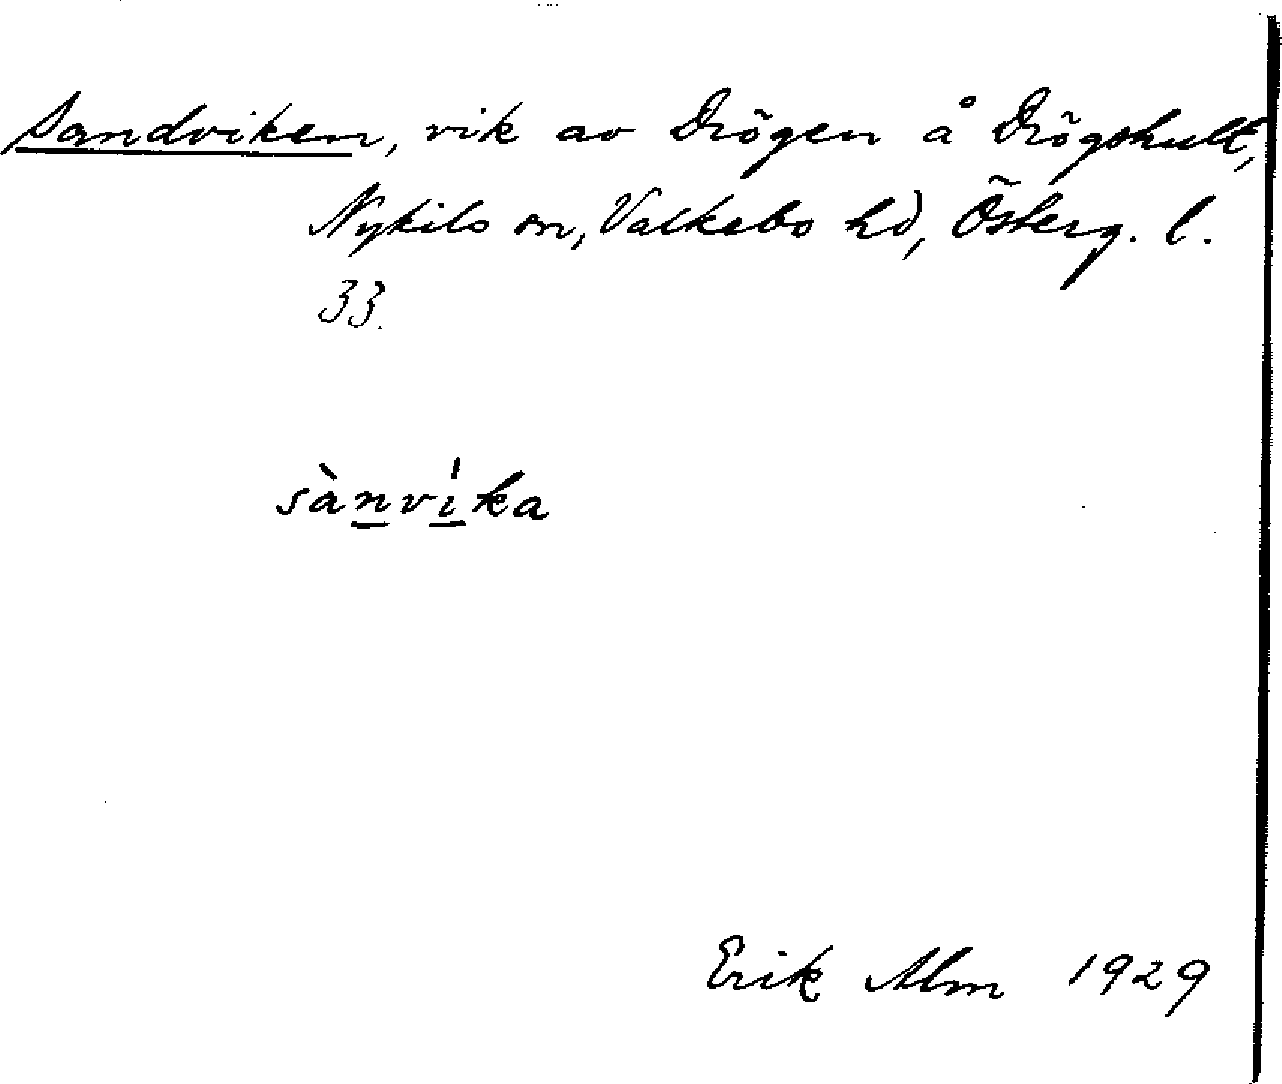 Sandviken, vik av Drögen å Drögshult,
Nykils sn, Valkebo hd, Österg. l.
33.
sànvi̍ka
Erik Alm 1929